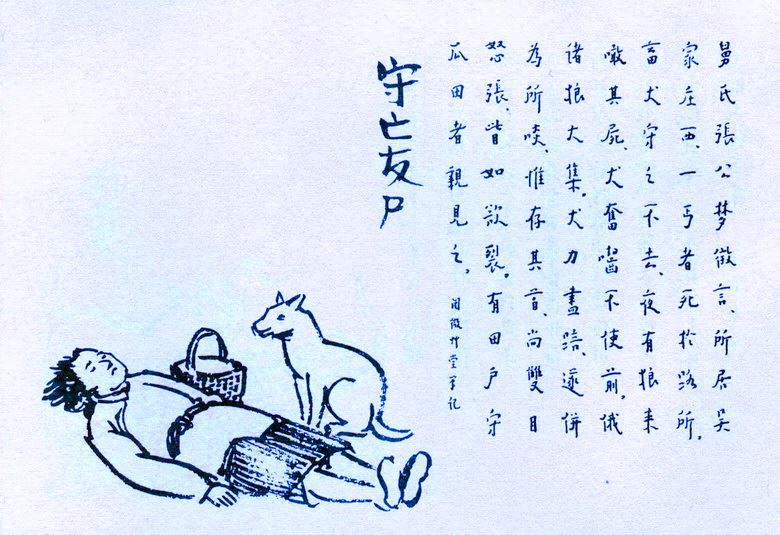 舅氏張公梦徵言、所居吴
家庄西、一丐者死於路所。
畜犬守之不去、夜有狼来
噉其屍、犬奮囓不使前。俄
诸狼大集。犬力盡踣、遂併
為所啖、惟存其首、尚雙目
怒張、眥如欲裂。有田户守
瓜田者親見之。
阅微艸堂笔记
守亡友尸